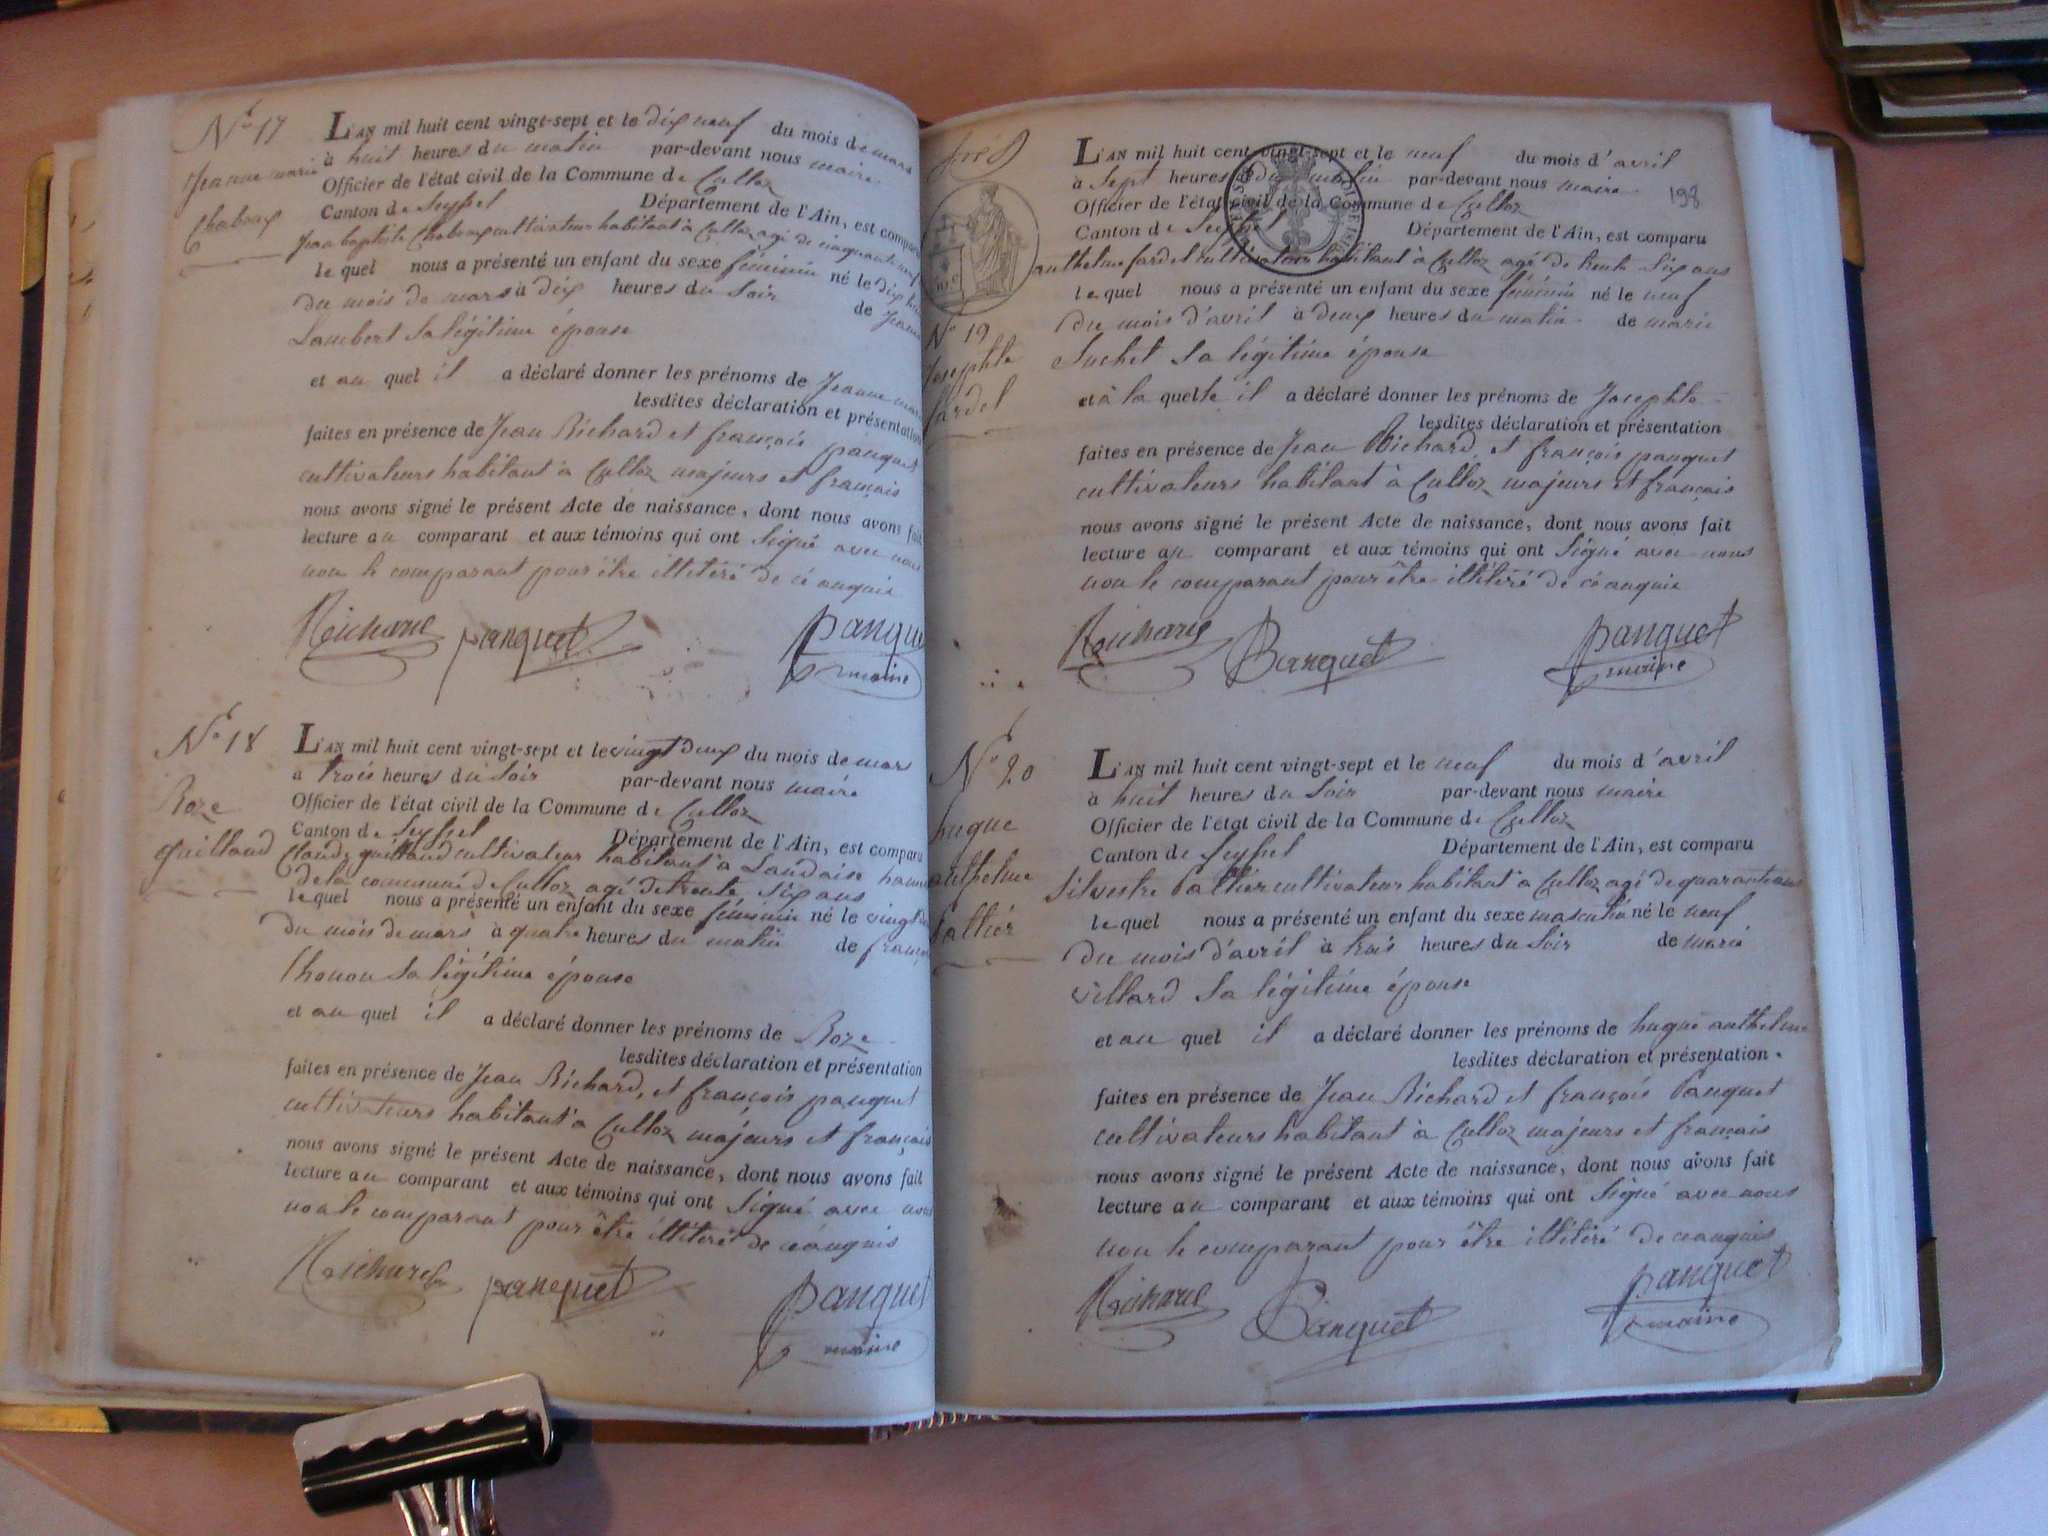 N.o 17
Jeanne marie
Chaboux
L'AN mil huit cent vingt-sept et le dix neuf du mois de mars
à huit heures du matin par-devant nous maire
Officier de l'état civil de la Commune de Culloz
Canton de Seyssel Département de l'Ain, est comparu
Jean baptiste Chaboux cultivateur habitant à Culloz agé de cinquante neuf
le quel nous a présenté un enfant du sexe féminin né le dix huit
du mois de mars à dix heures du Soir de Jeanne
Lambert Sa légitime épouse
et au quel il a déclaré donner les prénoms de Jeanne marie
lesdites déclaration et présentation
faites en présence de Jean Richard et françois panquet
cultivateurs habitant à Culloz majeurs et français
nous avons signé le présent Acte de naissance, dont nous avons fait
lecture au comparant et aux témoins qui ont Signé avec nous
non le comparant pour être illitéré de ce anquis
Richard panquet panquet
maire
N.o 18
Roze
guilland
L'AN mil huit cent vingt-sept et le vingt deux du mois de mars
a trois heures du Soir par-devant nous maire
Officier de l'état civil de la Commune de Culloz
Canton de Seyssel Département de l'Ain, est comparu
Claude guilland cultivateur habitant à Landaise hameau
de la commune de Culloz agé de trente Six ans
le quel nous a présenté un enfant du sexe féminin né le vingt
du mois de mars à quatre heures du matin de
Sa légitime épouse
et au quel il a déclaré donner les prénoms de Roze
lesdites déclaration et présentation
faites en présence de Jean Richard, et françois panquet
cultivateurs habitant à Culloz majeurs et français
nous avons signé le présent Acte de naissance, dont nous avons fait
lecture au comparant et aux témoins qui ont Signé avec nous
non le comparant pour être illitéré de ce anquis
Richard panquet panquet
maire
198
N.o 19
Josephte
fardel
L'AN mil huit cent vingt-sept et le neuf du mois d'avril
à Sept heures du matin par-devant nous maire
Officier de l'état civil de la Commune de Culloz
Canton de Seyssel Département de l'Ain, est comparu
anthelme fardel cultivateur habitant à Culloz agé de trente Six ans
le quel nous a présenté un enfant du sexe féminin né le neuf
du mois d'avril à deux heures du matin de marie
Suchet Sa légitime épouse
et à la quelle il a déclaré donner les prénoms de Josephte
lesdites déclaration et présentation
faites en présence de Jean Richard, et françois panquet
cultivateurs habitant à Culloz majeurs et français
nous avons signé le présent Acte de naissance, dont nous avons fait
lecture au comparant et aux témoins qui ont Signé avec nous
non le comparant pour être illitéré de ce anquis
Richard Panquet panquet
maire
N.o 20
hugue
anthelme
Pallier
L'AN mil huit cent vingt-sept et le neuf du mois d'avril
à huit heures du Soir par-devant nous maire
Officier de l'état civil de la Commune de Culloz
Canton de Seyssel Département de l'Ain, est comparu
Silvestre Pallier cultivateur habitant à Culloz agé de quarante ans
le quel nous a présenté un enfant du sexe masculin né le neuf
du mois d'avril à trois heures du Soir de marie
villard Sa légitime épouse
et au quel il a déclaré donner les prénoms de hugue anthelme
lesdites déclaration et présentation.
faites en présence de Jean Richard et françois Panquet
cultivateurs habitant à Culloz majeurs et français
nous avons signé le présent Acte de naissance, dont nous avons fait
lecture au comparant et aux témoins qui ont Signé avec nous
non le comparant pour être illitéré de ce anquis
Richard Panquet panquet
maire